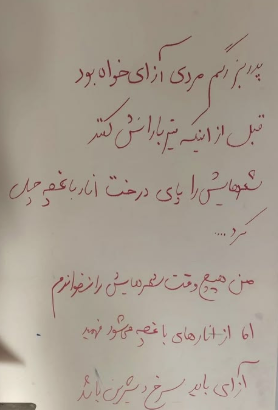 پدربزرگم مردی آزادی خواه بود
قبل از اینکه تیربارانش کنند
شعرهایش را پای درخت انار باغچه چال
کرد....
من هیچ وقت شعرهایش را نخواندم
اما از انارهای باغچه می‌شود فهمید
آزادی باید سرخ و شیرین باشد